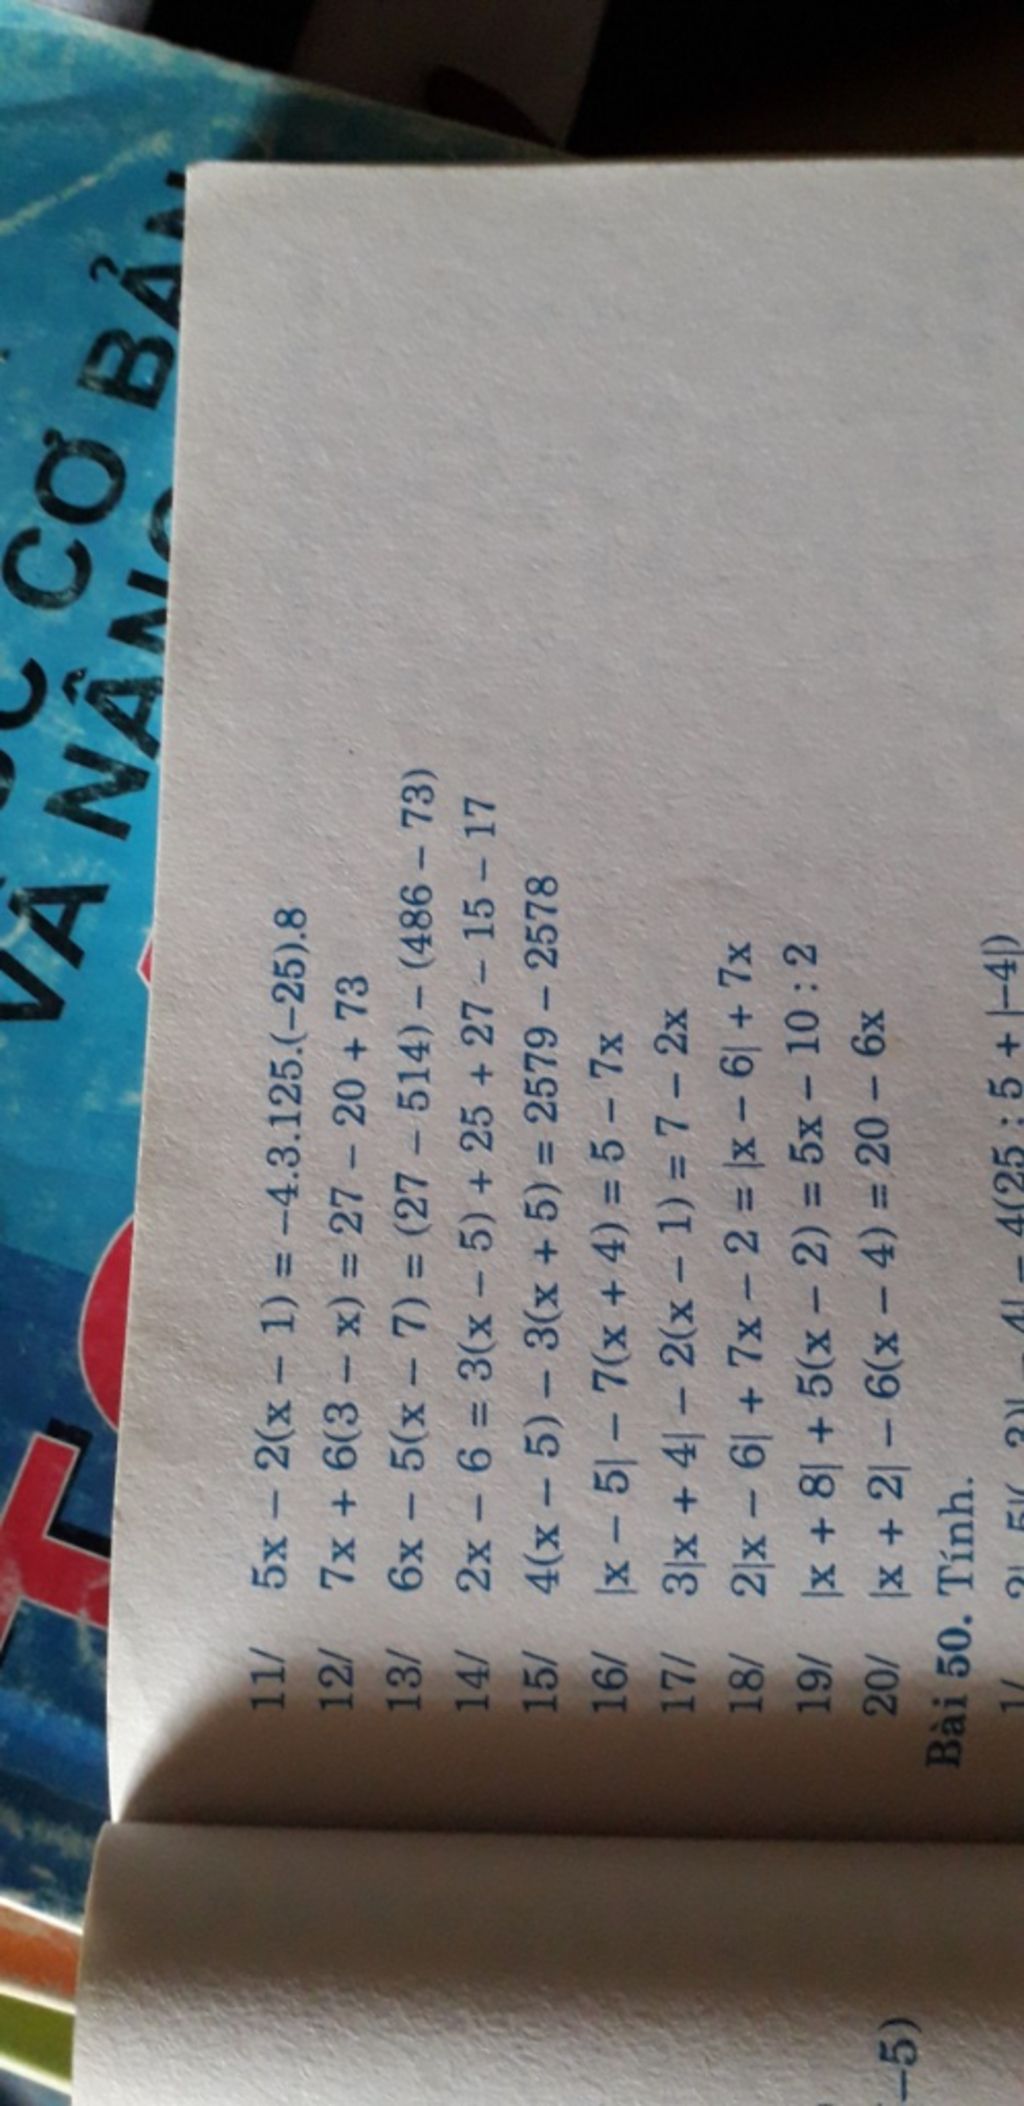 CƠ BẢN
VÀ NÂNG
11/ 5x – 2(x – 1) = –4.3.125.(–25).8
12/ 7x + 6(3 – x) = 27 – 20 + 73
13/ 6x – 5(x – 7) = (27 – 514) – (486 – 73)
14/ 2x – 6 = 3(x – 5) + 25 + 27 – 15 – 17
15/ 4(x – 5) – 3(x + 5) = 2579 – 2578
16/ |x – 5| – 7(x + 4) = 5 – 7x
17/ 3|x + 4| – 2(x – 1) = 7 – 2x
18/ 2|x – 6| + 7x – 2 = |x – 6| + 7x
19/ |x + 8| + 5(x – 2) = 5x – 10 : 2
20/ |x + 2| – 6(x – 4) = 20 – 6x
Bài 50. Tính.
1/ – 4(25 : 5 + |–4|)
–5)